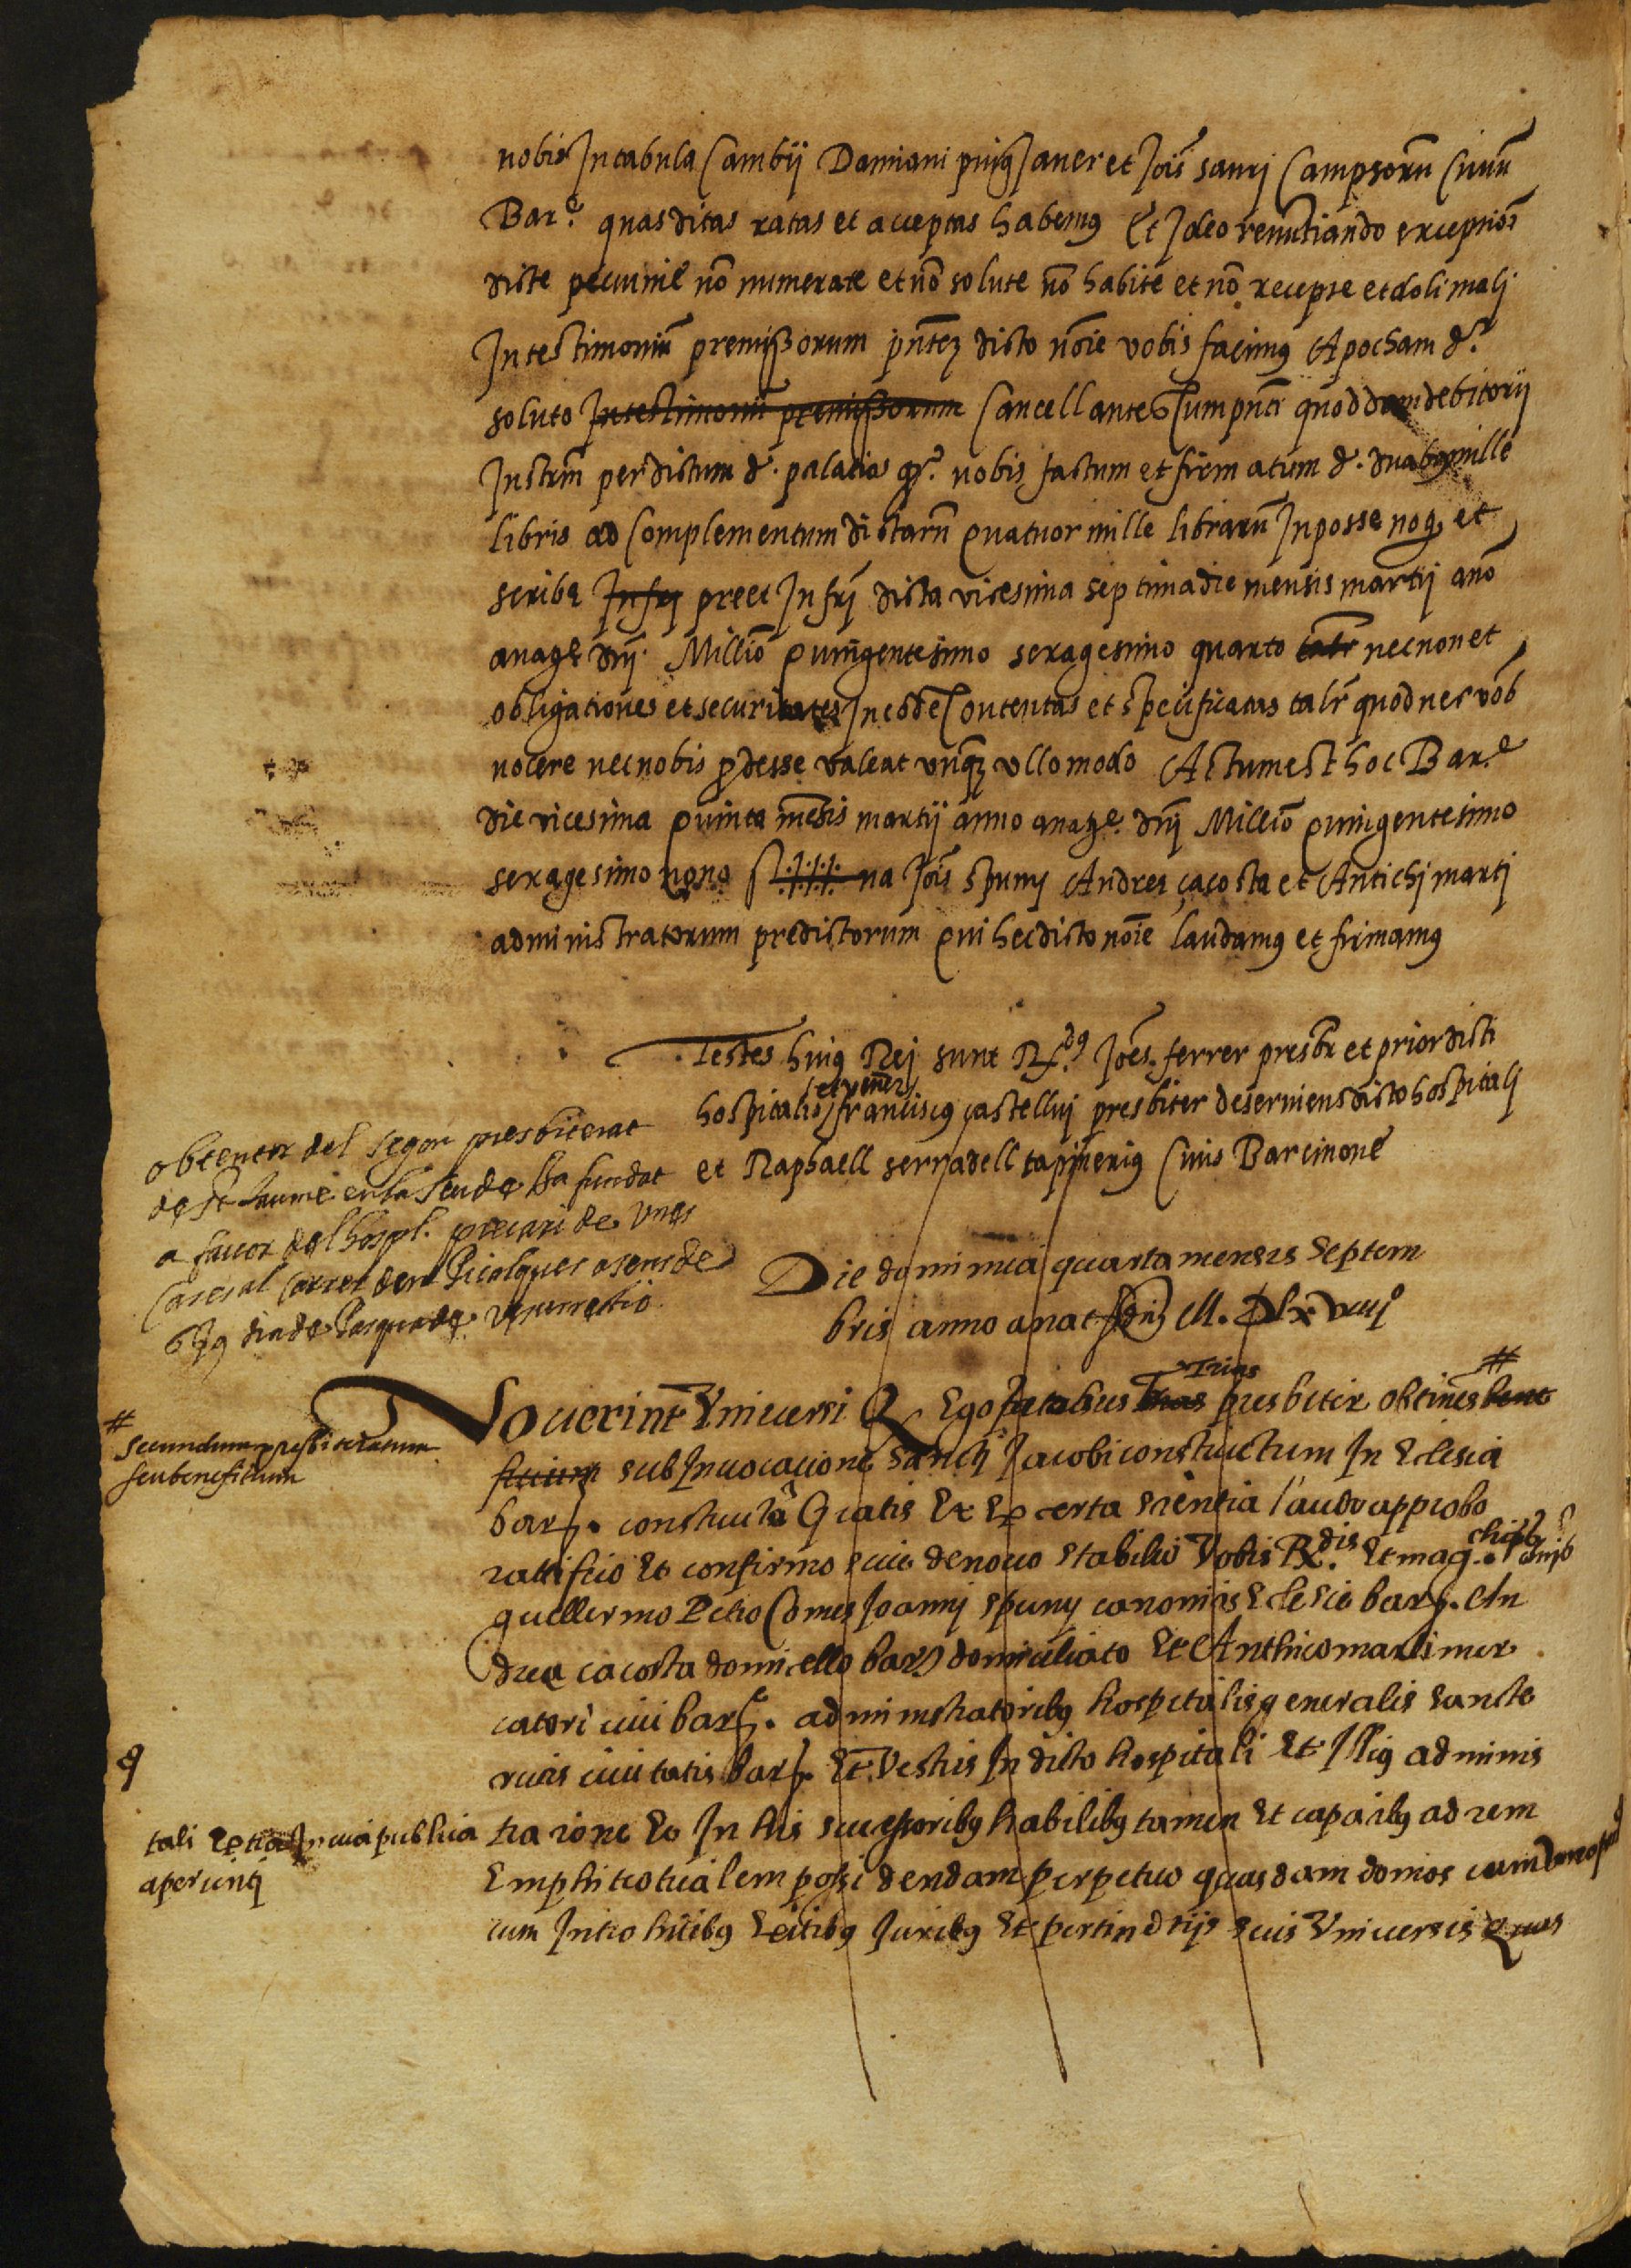 nobis In tabula Cambij Damiani puigJaner et Jois sauri Campsorũ Ciuiũ
Barᵉ. quas ditas ratas et acceptas habemꝰ Et Ideo renũtiando exceptioĩ
dicte pecunie nõ numerate et nõ solute nõ habite et nõ recepte et doli malj
In testimoniũ premissorum pñtẽ dicto nõie vobis facimꝰ Apocham dʳ.
soluto In testimoniũ premissorum Cancellantes Cum pñti quoddam debitorij
Instrm̃ per dictum dʳ. palatio qʳ. nobis factum et firmatum dʳ. duabꝰ mille
libris ad Complementum dictarũ quatuor mille librarũ In posse noꝶ et
scribe Infrj preet Infrj dicta vicesima septima die mensis martij anõ
a natᵉ dñj. Millio quingentesimo sexagesimo quarto talr necnon et
obligationes et securitates In eodẽ Contentas et specificatas talr̃ quod nec vob
nocere nec nobis prodesse valeat vnqꝫ vllo modo Actum est hoc Barᵉ
die vicesima quinta mẽsis martij anno a natᵉ. dñj Millio quingentesimo
sexagesimo nono S na Jois spuny Andree çacosta et Antichj martj
administratorum predictorum qui hec dicto nõie laudamꝰ et firmamꝰ
Testes huiꝰ Rej sunt Rdꝰ Joẽs. ferrer presbr̃ et prior dicti
et venerˡ
hospitalis franciscꝰ castelluj presbiter deseruiens dicto hospitalj
et Raphaell serradell tapinerius Ciuis Barcinone
obtentor del segon presbiterat
de St Jaume en la Seu de ha fundat
a fauor del hospˡ. precari de vnes
Cases al Carrer den Picalques a sens de
6 s 9 dia de Pasqua de resurrectio
Die dominica quarta mensis septem
bris anno a nat dnj M. D lx viiijº
Trias
#
Nouerint Vniuersi Q Ego Jacobus trias presbiter obtines bene
# secundum presbiteratum
seu beneficium
ficium sub Inuocacione Sancti Jacobi constructum In Eclesia
barᵉ. constructa Gratis Et Ex certa scientia laudo approbo
ratifico Et confirmo seu de nouo stabilio Vobis Rdis. Et mag.
guillermo Petro Comes Joannj spuny canonicis Eclesie barᵉ. An
drea cacosta domicello barᵉ domiciliato Et Anthico marti mer
catori ciui barᵉ. administratoribꝰ hospitalis generalis sancte
crucis ciuitatis barᵉ. Et Vestris In dicto hospitali Et Illiꝰ adminis
tratione Et In his successoribꝰ habilibꝰ tamen Et capacibꝰ ad rem
tali In via publica
aperienti
Emphiteoticalem possidendam perpetuo quasdam domos cum
cum Introhitibꝰ Exitibꝰ Juribꝰ Et pertinẽtijs suis Vniuersis Quas